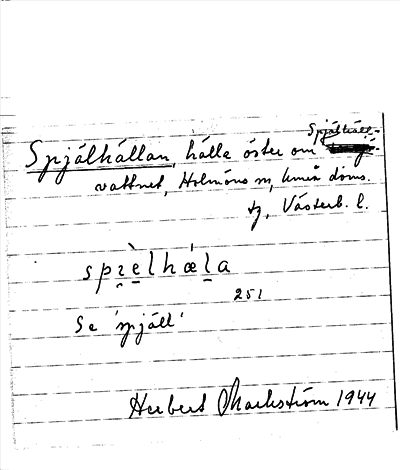 Spjälhällan, hälla öster om Spjälhäll-
vattnet, Holmöns sn, Umeå doms.
tg, Västerb. l.
spɪ̯èlhǽla
251
Se 'spjäll'
Herbert Markström 1944